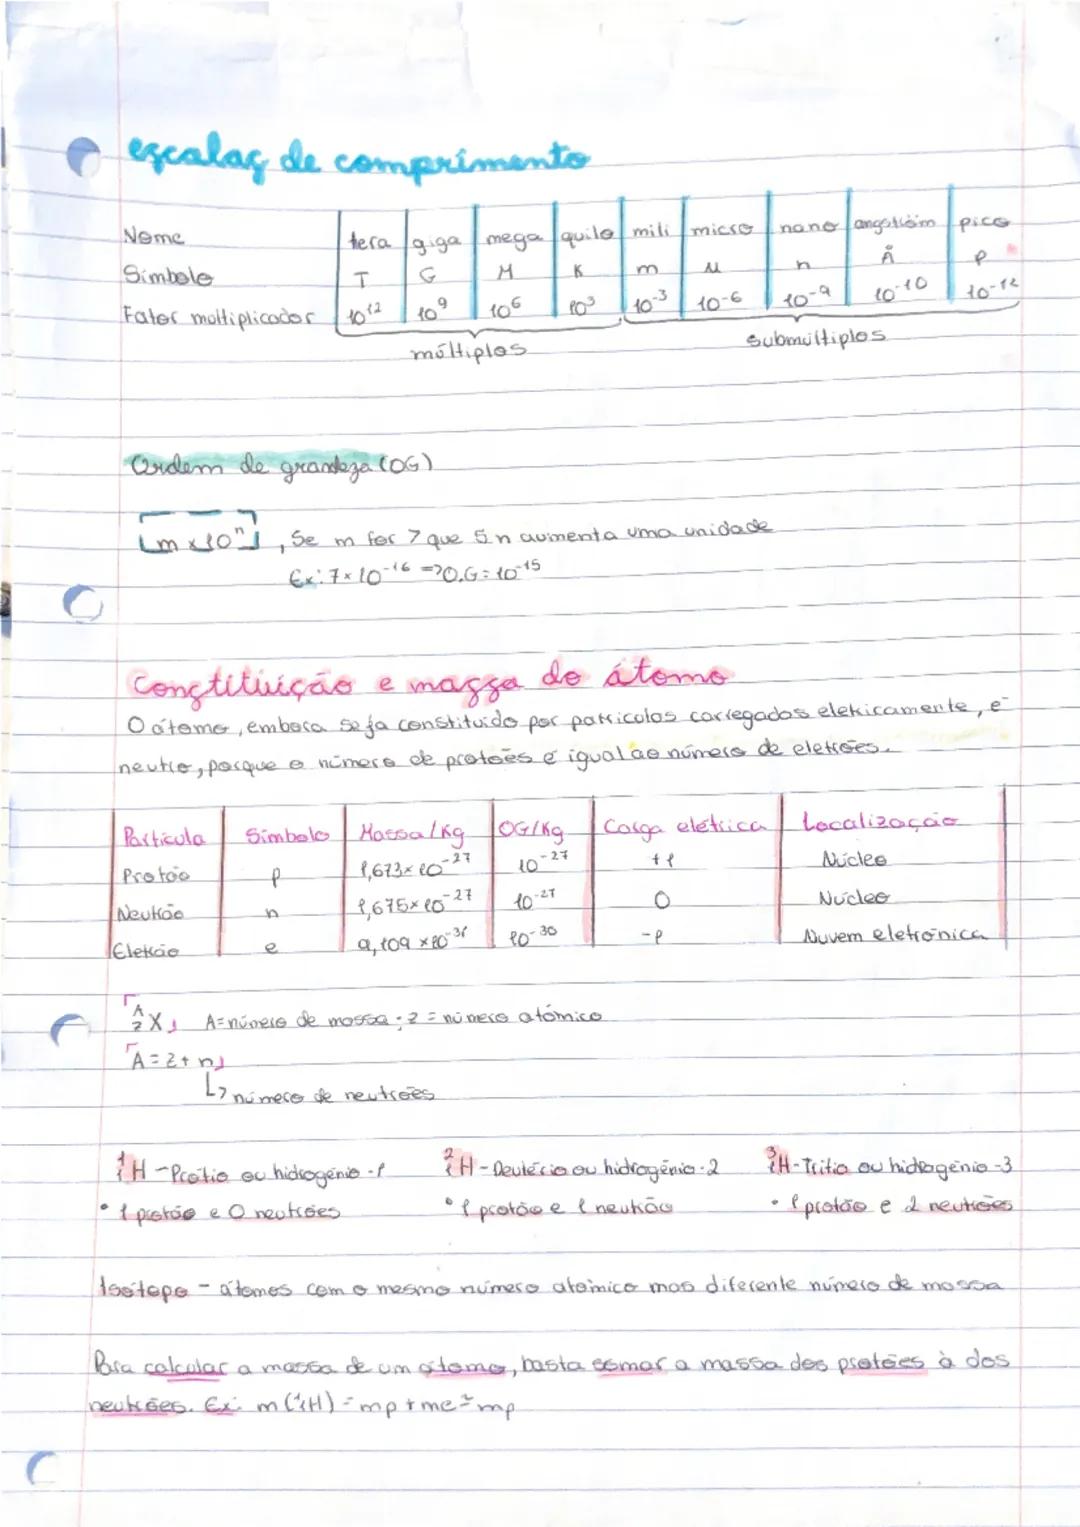 escalas de comprimento
Nome tera giga mega quilo mili micro nano angstrom pico
Símbolo T G M K m µ n Å p
Fator multiplicador 10¹² 10⁹ 10⁶ 10³ 10⁻³ 10⁻⁶ 10⁻⁹ 10⁻¹⁰ 10⁻¹²
múltiplos submúltiplos
Ordem de grandeza (OG)
[m x 10ⁿ], Se m for > que 5 n aumenta uma unidade
Ex: 7 x 10⁻¹⁶ => O.G = 10⁻¹⁵
Constituição e massa do átomo
O átomo, embora seja constituído por partículas carregadas eletricamente, é
neutro, porque o número de protões é igual ao número de eletrões.
Partícula Símbolo Massa/Kg OG/Kg Carga elétrica Localização
Protão p 1,673 x 10⁻²⁷ 10⁻²⁷ +1 Núcleo
Neutrão n 1,675 x 10⁻²⁷ 10⁻²⁷ 0 Núcleo
Eletrão e 9,109 x 10⁻³¹ 10⁻³⁰ -1 Nuvem eletrónica
ᴬ_Z X, A = número de massa ; Z = número atómico
A = Z + n
↳ número de neutrões
¹₁H - Prótio ou hidrogénio -1 ²₁H - Deutério ou hidrogénio -2 ³₁H - Trítio ou hidrogénio -3
• 1 protão e 0 neutrões • 1 protão e 1 neutrão • 1 protão e 2 neutrões
Isótopo - átomos com o mesmo número atómico mas diferente número de massa
Para calcular a massa de um átomo, basta somar a massa dos protões à dos
neutrões. Ex: m (¹₁H) = mp + me ≈ mp